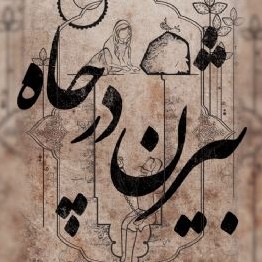 بیژن در چاه